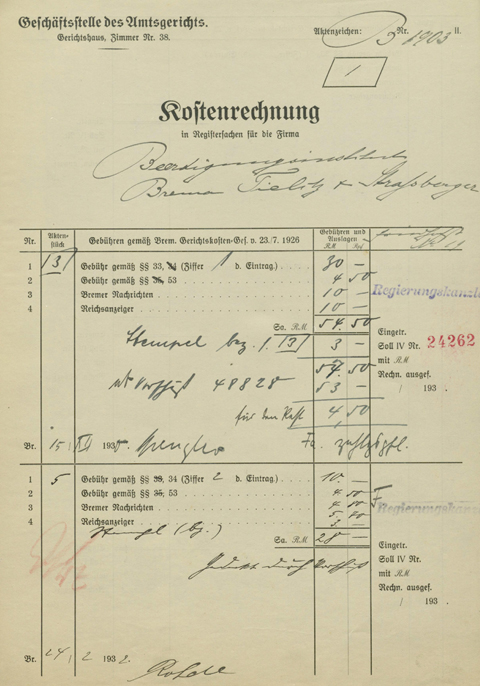 Geschäftsstelle des Amtsgerichts.
Gerichtshaus, Zimmer Nr. 38.
Aktenzeichen: B Nr. 1903 II.
1
Kostenrechnung
in Registersachen für die Firma
Beerdigungsinstitut
Brema Tielitz & Strassberger
Nr. Akten-stück Gebühren gemäß Brem. Gerichtskosten-Ges. v. 23./7. 1926 Gebühren und Auslagen RM Rpf
1 13 Gebühr gemäß §§ 33, 34 (Ziffer 1 d. Eintrag.) 30 —
2 Gebühr gemäß §§ 35, 53 4 50
3 Bremer Nachrichten 10 —
Regierungskanzlei
4 Reichsanzeiger 10 —
Sa. RM 54. 50
Eingetr.
Stempel bez. 1. 13 3 —
Soll IV Nr. 24262
mit RM
57. 50
Rechn. ausgef.
Vorschuß 48828 53 —
/ 193 .
für den Rest 4,50
Br. 15 XII 193
1 5 Gebühr gemäß §§ 33, 34 (Ziffer 2 d. Eintrag.) 10. —
2 Gebühr gemäß §§ 35, 53 4 50
3 Bremer Nachrichten
Regierungskanzlei
4 Reichsanzeiger
Stempel (bz.) 3. —
Sa. RM 28 —
Eingetr.
Gedeckt durch Vorschuß
Soll IV Nr.
mit RM
Rechn. ausgef.
/ 193 .
Br. 24 / 2 193 2.